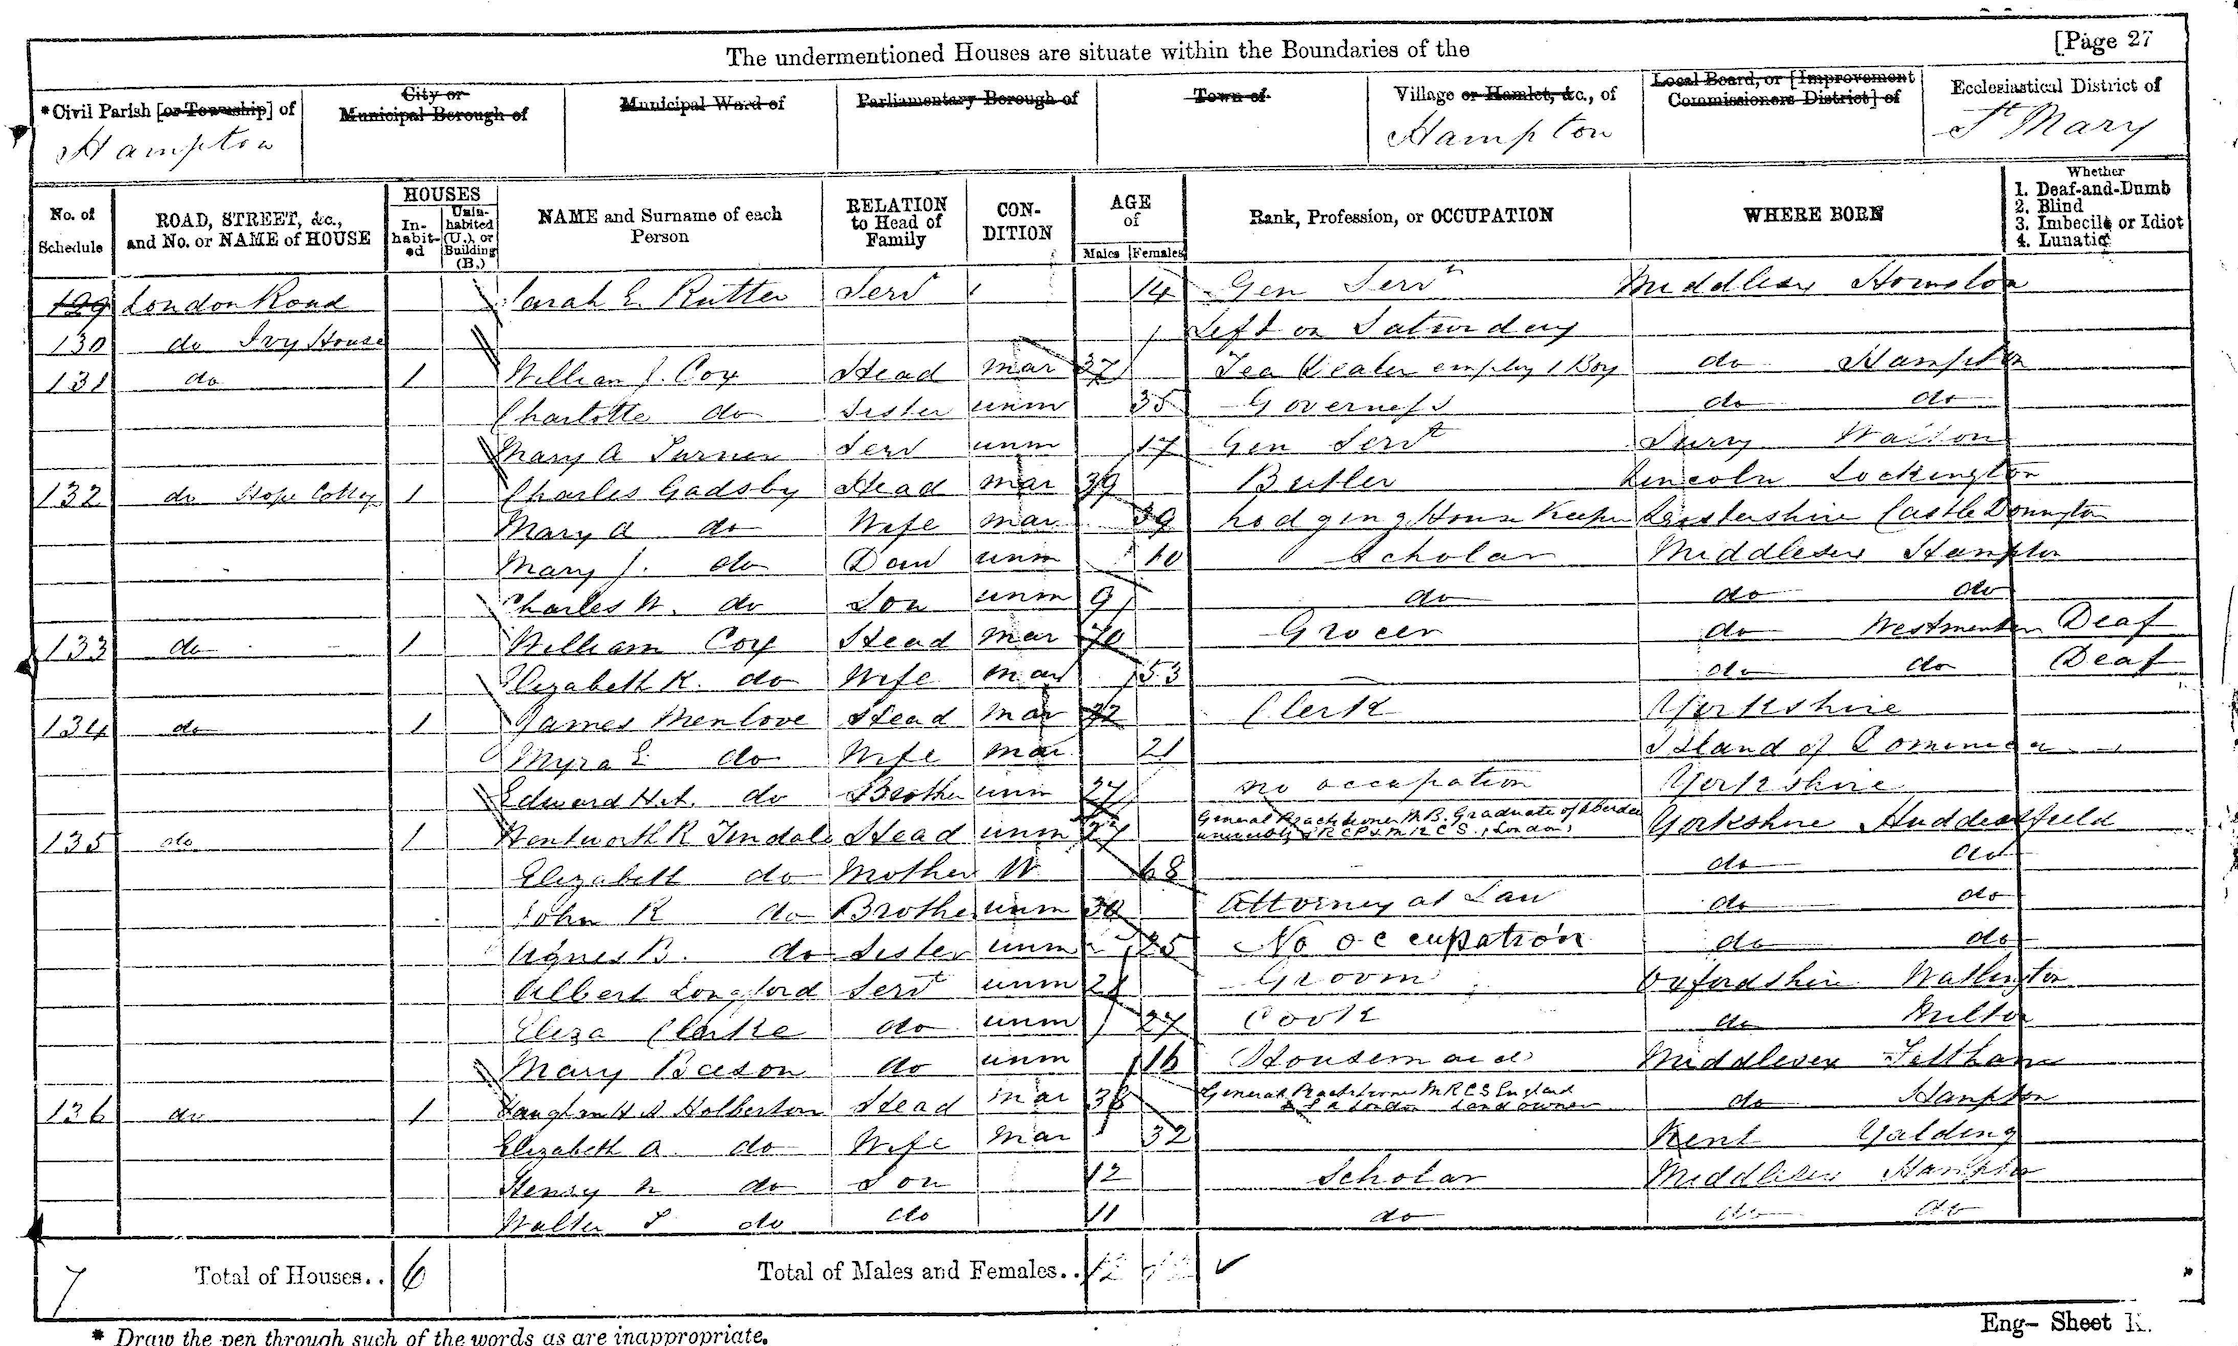 The undermentioned Houses are situate within the Boundaries of the
[Page 27
*Civil Parish [or Township] of
Hampton
City or
Municipal Borough of
Municipal Ward of
Parliamentary Borough of
Town of
Village or Hamlet, &c., of
Hampton
Local Board, or [Improvement
Commissioners District] of
Ecclesiastical District of
St Mary
No. of
Schedule
ROAD, STREET, &c.,
and No. or NAME of HOUSE
HOUSES
In-
habit-
ed
Unin-
habited
(U.), or
Building
(B.)
NAME and Surname of each
Person
RELATION
to Head of
Family
CON-
DITION
AGE
of
Males Females
Rank, Profession, or OCCUPATION
WHERE BORN
Whether
1. Deaf-and-Dumb
2. Blind
3. Imbecile or Idiot
4. Lunatic
129 London Road Sarah E. Rutter Serv 14 Gen Servt Middlesex Hounslow
130 do Ivy House Left on Saturday
131 do 1 William J. Cox Head mar 37 Tea Dealer employ 1 Boy do Hampton
Charlotte do Sister unm 35 Governess do do
Mary A Turner Serv unm 17 Gen Servt Surry Walton
132 do Hope Cottg 1 Charles Gadsby Head mar 39 Butler Lincoln Lockington
Mary A do Wife mar 39 Lodging House Keeper Leistershire Castle Donnington
Mary J. do Daur unm 10 Scholar Middlesex Hampton
Charles W. do Son unm 9 do do do
133 do 1 William Cox Head mar 70 Grocer do Westminster Deaf
Elizabeth K. do Wife mar 53 do do Deaf
134 do 1 James Menlove Head mar Clerk Yorkshire
Myra E. do Wife mar 21 Island of Dominica
Edward H.A. do Brother unm 27 no occupation Yorkshire
135 do 1 Wentworth R Tindale Head unm 27 General Practitioner M.B. Graduate of Aberdeen
University L R C P & M R C S. (London) Yorkshire Huddersfield
Elizabeth do Mother W 68 do do
John R do Brother unm 30 Attorney at Law do do
Agnes B. do Sister unm 25 No occupation do do
Albert Longford Servt unm 21 Groom Oxfordshire Watlington
Eliza Clarke do unm 27 Cook do Milton
Mary Beeson do unm 16 Housemaid Middlesex Feltham
136 do 1 Holberton Head mar 38 General Practitioner MRCS England
London Land owner do Hampton
Elizabeth A. do Wife mar 32 Kent Yalding
Henry do Son 12 Scholar Middlesex Hampton
Walter do do 11 do do do
7 Total of Houses.. 6 Total of Males and Females.. 12 12 ✓
* Draw the pen through such of the words as are inappropriate.
Eng- Sheet K.